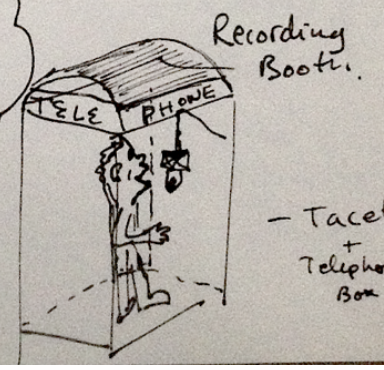 Recording
Booth.
TELE PHONE
- Tacet
+
Box